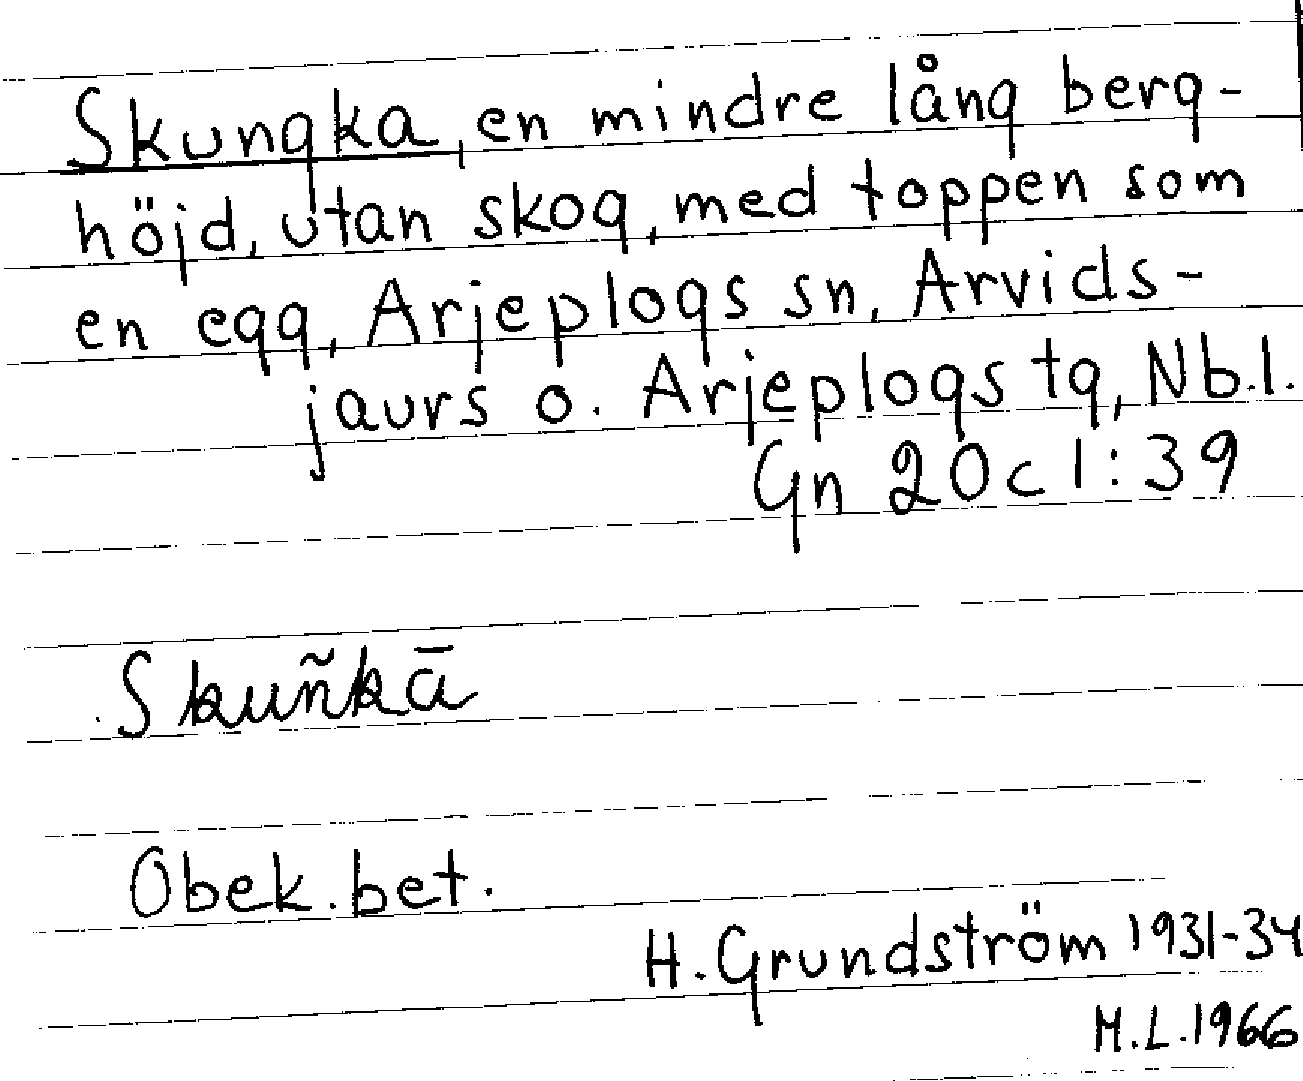 Skungka, en mindre lång berg-
höjd, utan skog, med toppen som
en egg, Arjeplogs sn, Arvids-
jaurs o. Arjeplogs tg, Nb.l.
Gn 20c1:39
Skuñkā
Obek. bet.
H. Grundström 1931-34
M.L.1966